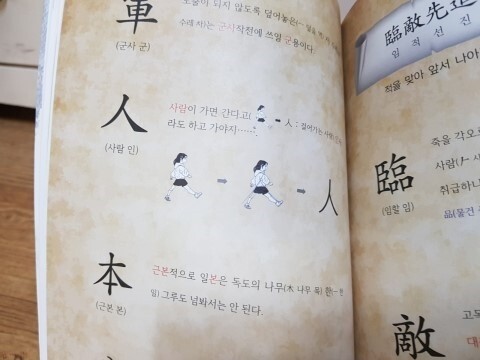 軍
(군사 군)
수레 차)는 군사작전에 쓰일 군용이다.
人
(사람 인)
사람이 가면 간다고(
- 人 : 걸어가는 사람
라도 하고 가야지……
人
本
(근본 본)
근본적으로 일본은 독도의 나무(木 나무 목) 한(一 한
일) 그루도 넘봐서는 안 된다.
臨敵先
임 적 선 진
적을 맞아 앞서 나아
臨
(임할 임)
죽을 각오로
사람(
취급하나
品(물건
敵